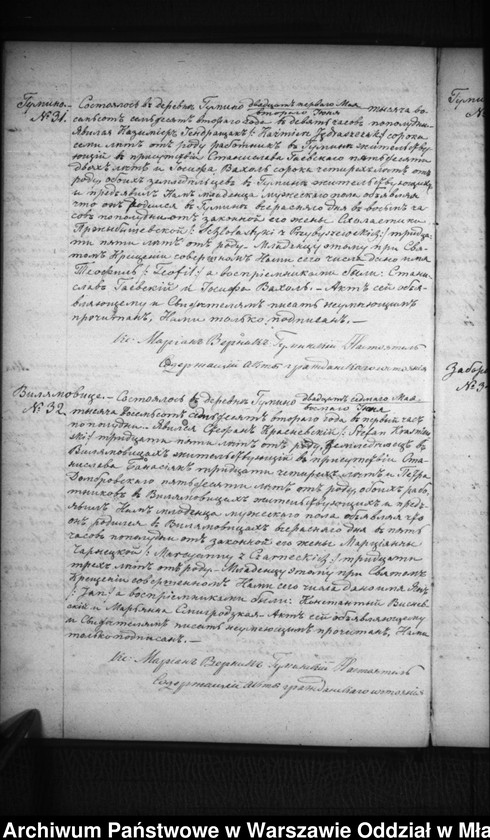 Гумино.
№ 31.
Состоялось въ деревнѣ Гумино двадцать перваго Мая
втораго Іюня тысяча во-
семьсотъ семьдесятъ втораго года въ девять часовъ пополудни.
Явился Казимѣръ Гендращакъ /: Kazimierz Jędraszczak :/ сорока
семи лѣтъ отъ роду работникъ въ Гуминѣ жительству-
ющій въ присутствіи Станислава Гаевскаго пятьдесяти
двухъ лѣтъ и Іосифа Вахоль сорока четырехъ лѣтъ отъ
роду обоихъ земледѣльцевъ въ Гуминѣ жительствующихъ
и предъявилъ Намъ младенца мужескаго пола объявляя
что онъ родился въ Гуминѣ вчерашняго дня въ восемь ча-
совъ пополудни отъ законной его жены Схоластики
Пржибишевской /: Scholastyki z Przybyszewskich :/ тридца-
ти пяти лѣтъ отъ роду. Младенцу этому при Свя-
томъ Крещеніи совершенномъ Нами сего числа дано имя
Теофиль /: Teofil :/ а воспріемниками были: Стани-
славъ Гаевскій и Іосифа Вахоль. — Актъ сей объя-
вляющему и Свидѣтелямъ писать неумѣющимъ
прочитанъ, Нами только подписанъ. —
Кс. Маріанъ Гуминскій Настоятель
Содержащій Акты гражданскаго состоянія
Вилямовице.
№ 32.
Состоялось въ деревнѣ Гумино двадцать седьмаго Мая
восьмаго Іюня
тысяча восемьсотъ семьдесятъ втораго года въ первый часъ
пополудни. Явился Стефанъ Красневскій /: Stefan Krasniew-
ski :/ тридцати пяти лѣтъ отъ роду, земледѣлецъ въ
Вилямовицахъ жительствующій въ присутствіи Ста-
нислава Банасіакъ тридцати четырехъ лѣтъ и Петра
Домбровскаго пятьдесяти лѣтъ отъ роду, обоихъ рабо-
тниковъ въ Вилямовицахъ жительствующихъ и предъ-
явилъ Намъ младенца мужескаго пола объявляя что
онъ родился въ Вилямовицахъ вчерашняго дня въ пять
часовъ пополудни отъ законной его жены Марціанны
Чарнецкой /: Maryanny z Czarneckich :/ тридцати
трехъ лѣтъ отъ роду. Младенцу этому при Святомъ
Крещеніи совершенномъ Нами сего числа дано имя Янъ
/: Jan :/ а воспріемниками были: Константый Висней-
скій и Марьянна Смигродзкая. Актъ сей объявляющему
и Свидѣтелямъ писать неумѣющимъ прочитанъ, Нами
только подписанъ. —
Кс. Маріанъ Гуминскій Настоятель
Содержащій Акты гражданскаго состоянія
Забор
№ 3
Archiwum Państwowe w Warszawie Oddział w Mła